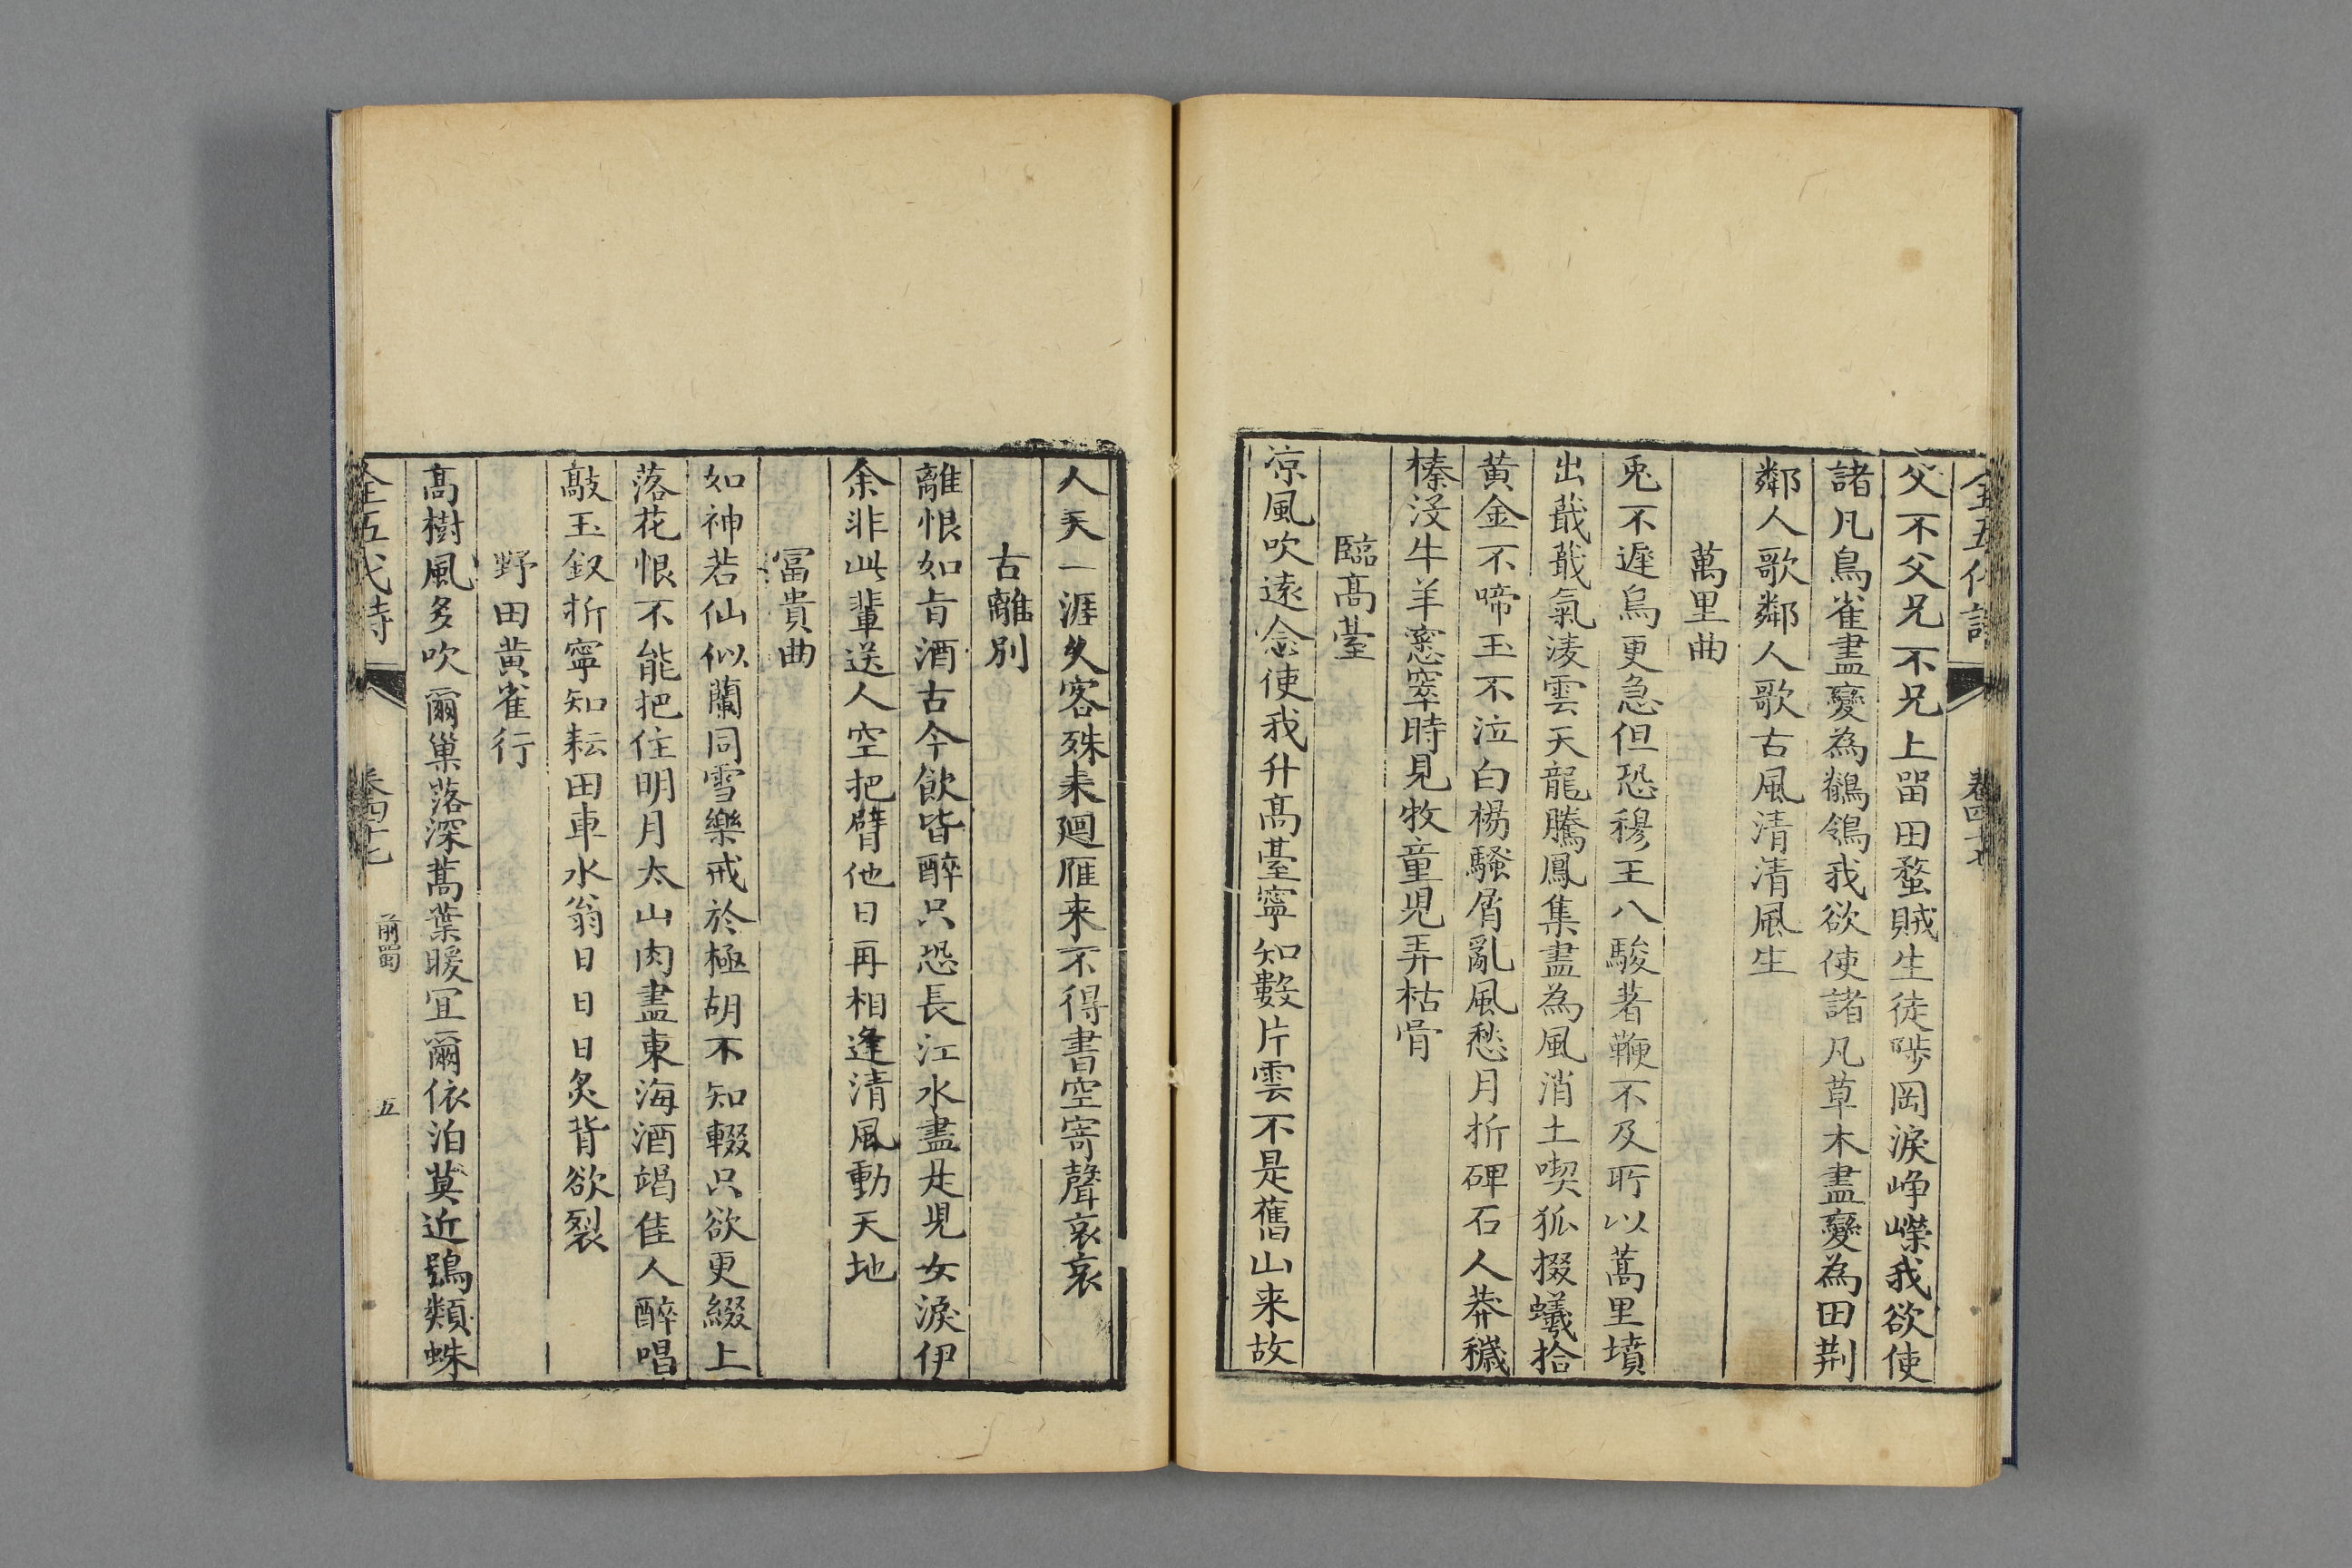 全五代詩 卷四十七
父不父兄不兄上畱田蝥賊生徒陟岡淚崢嶸我欲使
諸凡鳥雀盡變為鶺鴒我欲使諸凡草木盡變為田荆
鄰人歌鄰人歌古風清清風生
萬里曲
兎不遲烏更急但恐穆王八駿著鞭不及所以蒿里墳
出蕺蕺氣凌雲天龍騰鳳集盡為風消土喫狐掇蟻拾
黄金不啼玉不泣白楊騷屑亂風愁月折碑石人莽穢
榛沒牛羊窸窣時見牧童兒弄枯骨
臨髙臺
凉風吹遠念使我升髙臺寧知數片雲不是舊山来故
人天一涯久客殊未廻雁来不得書空寄聲哀哀
古離別
離恨如旨酒古今飲皆醉只恐長江水盡是兒女淚伊
余非此輩送人空把臂他日再相逢清風動天地
冨貴曲
如神若仙似蘭同雪樂戒於極胡不知輟只欲更綴上
落花恨不能把住明月太山肉盡東海酒竭佳人醉唱
敲玉釵折寧知耘田車水翁日日日炙背欲裂
野田黄雀行
髙樹風多吹爾巢落深蒿葉暖宜爾依泊莫近鴞類蛛
全五代詩 卷四十七 前蜀 五